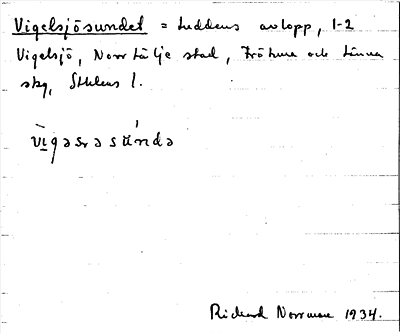 Vigelsjösundet = Luddens avlopp, 1-2
Vigelsjö, Norrtälje stad, Frötuna och Länna
skg, Sthlms l.
vi̱gəsrəsúndə
Richard Norrman 1934.